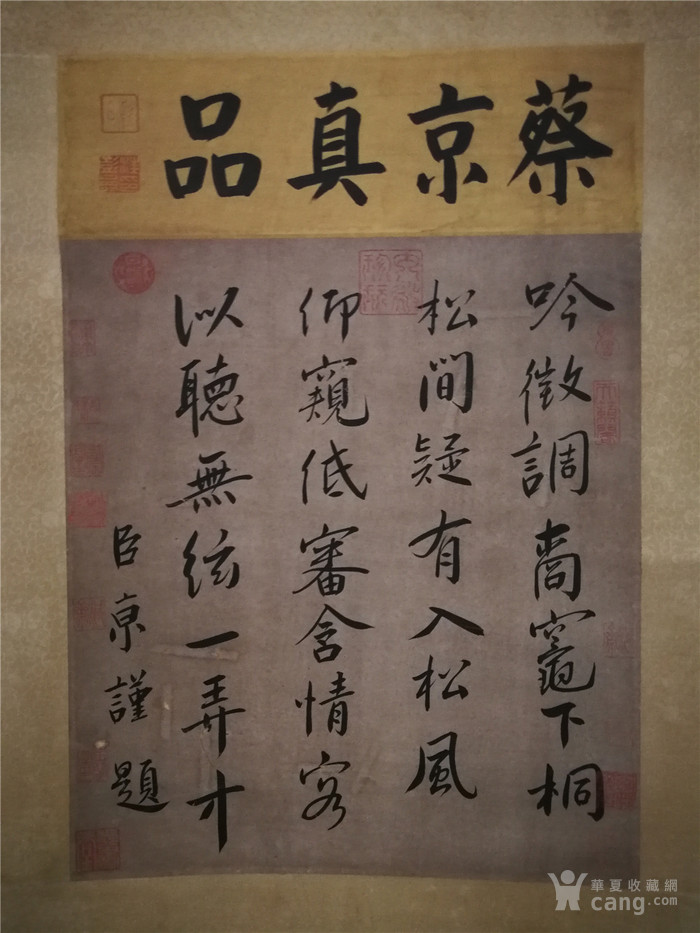 蔡京真品
吟徵調商竈下桐
松間疑有入松風
仰窺低審含情客
似聽無絃一弄中
臣京謹題
華夏收藏網
cang.com